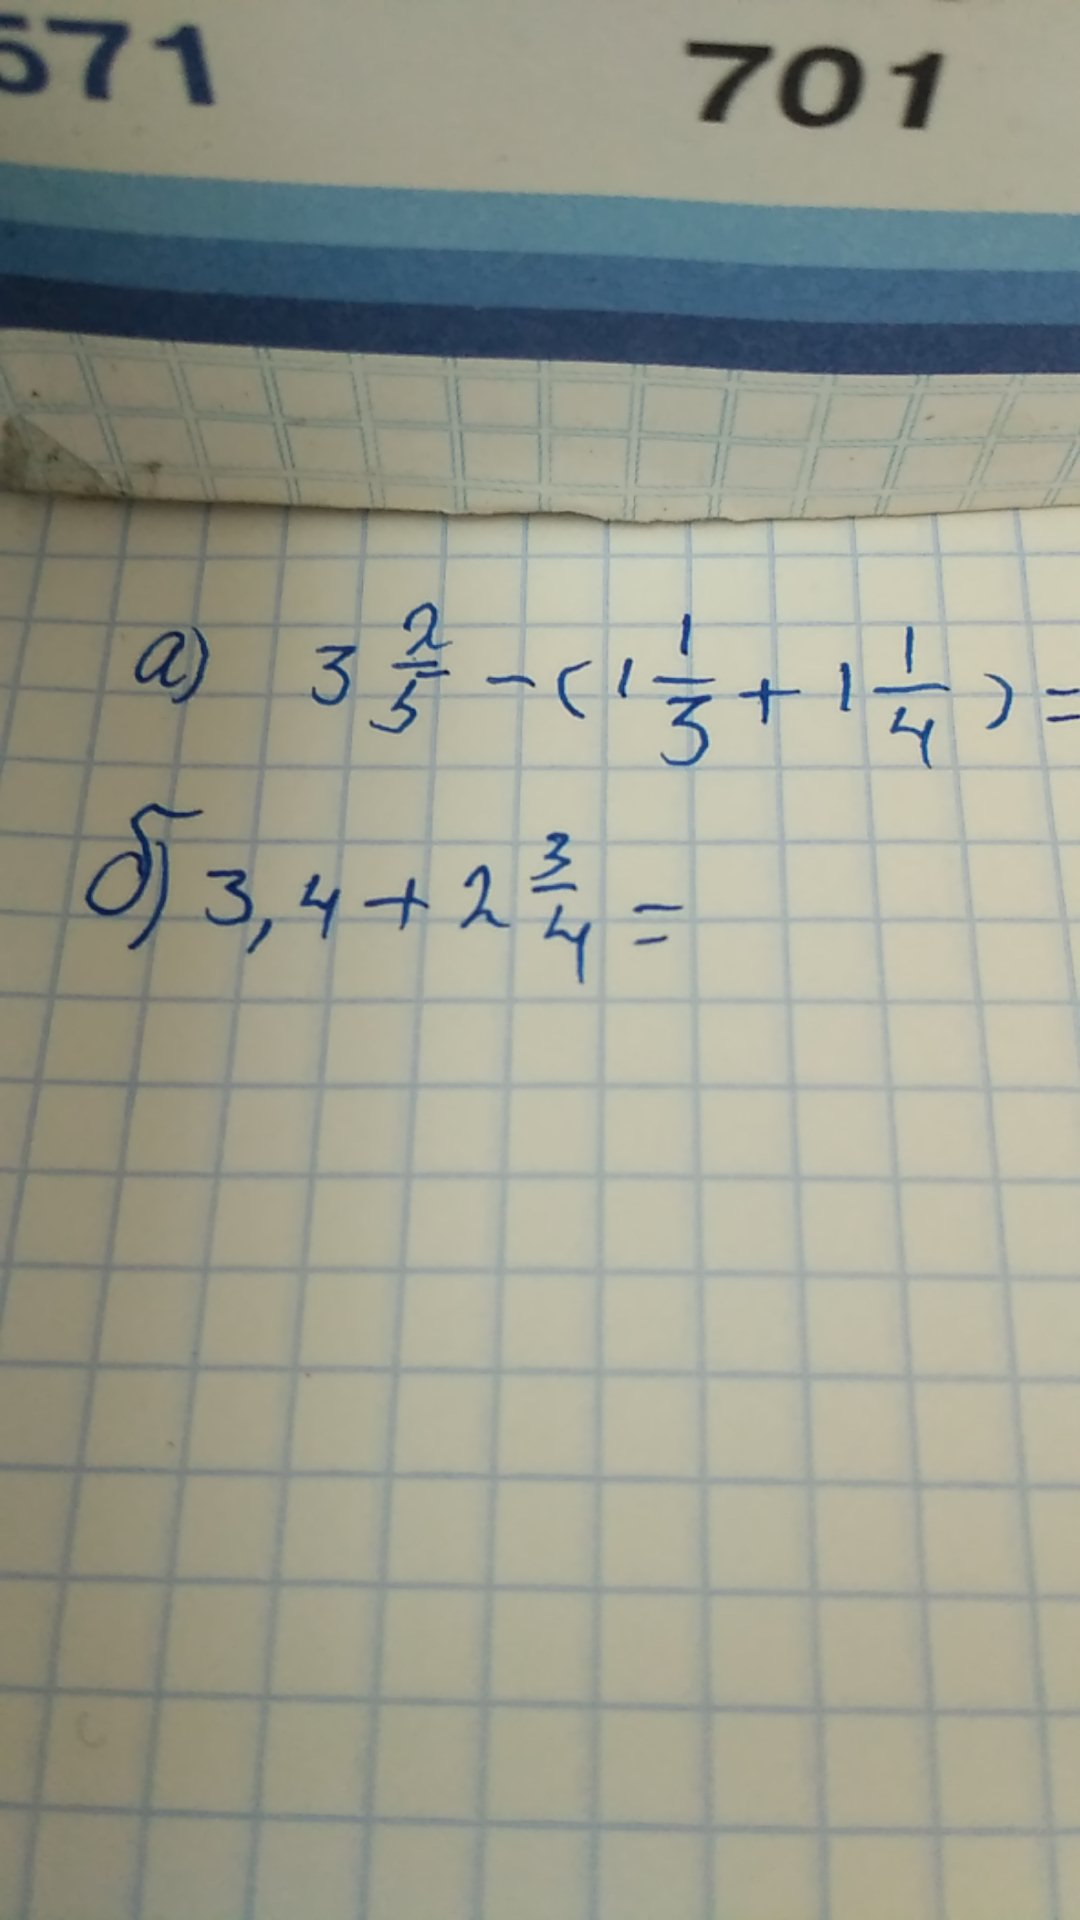 571 701
а) 3 2/5 - (1 1/3 + 1 1/4) =
б) 3,4 + 2 3/4 =